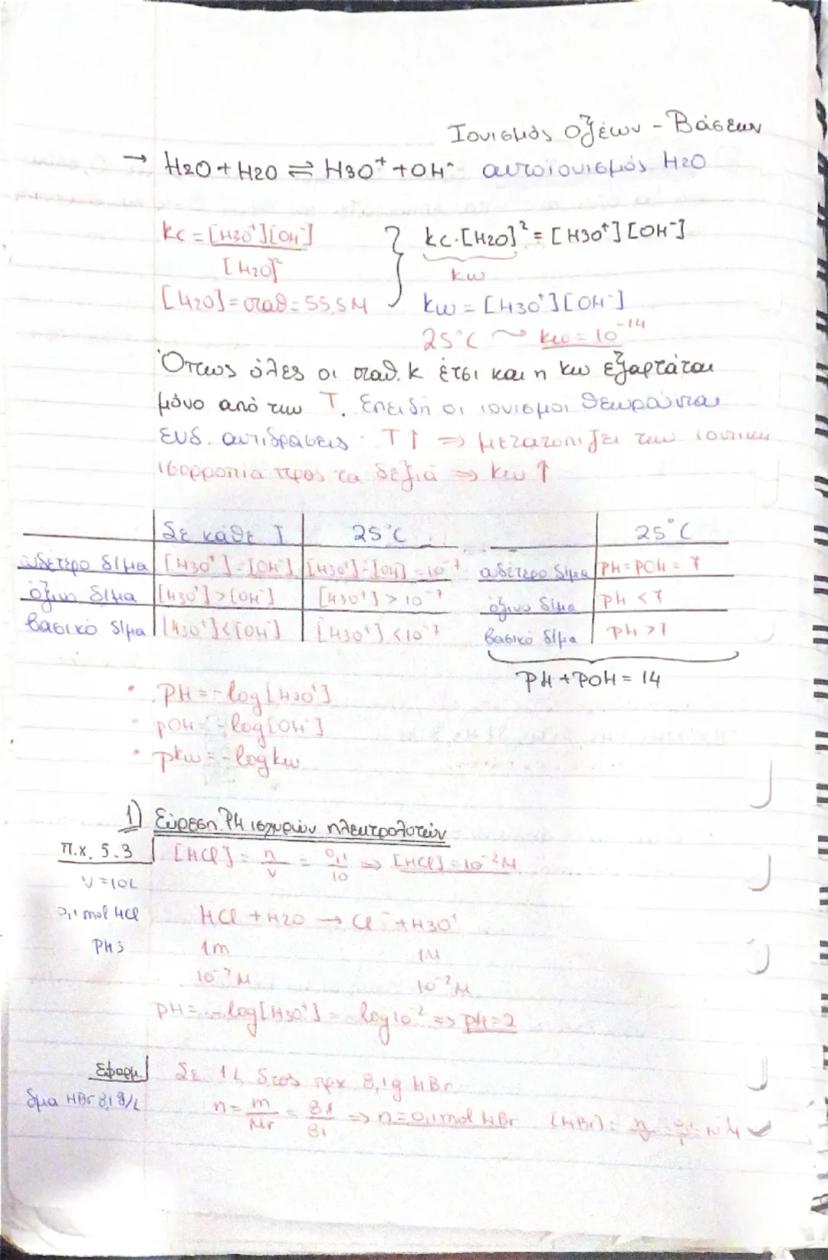 Ιονισμός οξέων - Βάσεων
→ H2O + H2O ⇌ H3O⁺ + OH⁻ αυτοϊονισμός H2O
kc = [H3O⁺][OH⁻] / [H2O]² } kc·[H2O]² = [H3O⁺][OH⁻]
kw
[H2O] = σταθ = 55,5M kw = [H3O⁺][OH⁻]
25°C ⤳ kw = 10⁻¹⁴
Όπως όλες οι σταθ. k έτσι και η kw εξαρτάται
μόνο από την T. Επειδή οι ιονισμοί θεωρούνται
ενδ. αντιδράσεις T↑ ⇒ μετατοπίζει την ιοντική
ισορροπία προς τα δεξιά ⇒ kw ↑
Σε κάθε T | 25°C
ουδέτερο δ/μα | [H3O⁺] = [OH⁻] | [H3O⁺] = [OH⁻] = 10⁻⁷
όξινο δ/μα | [H3O⁺] > [OH⁻] | [H3O⁺] > 10⁻⁷
βασικό δ/μα | [H3O⁺] < [OH⁻] | [H3O⁺] < 10⁻⁷
25°C
ουδέτερο δ/μα | PH = POH = 7
όξινο δ/μα | PH < 7
βασικό δ/μα | PH > 7
PH + POH = 14
• PH = -log[H3O⁺]
• pOH = -log[OH⁻]
• pkw = -logkw
1) Εύρεση PH ισχυρών ηλεκτρολυτών
π.χ. 5.3 [HCl] = n/V = 0,1/10 ⇒ [HCl] = 10⁻²M
V = 10L
0,1 mol HCl HCl + H2O → Cl⁻ + H3O⁺
PH; 1m 1M
10⁻²M 10⁻²M
PH = -log[H3O⁺] = -log10⁻² ⇒ pH = 2
Εφαρμ. Σε 1L δ/τος 8,1g HBr
δμα HBr 8,1 g/L n = m/Mr = 8,1/81 ⇒ n = 0,1mol HBr [HBr] = n/V